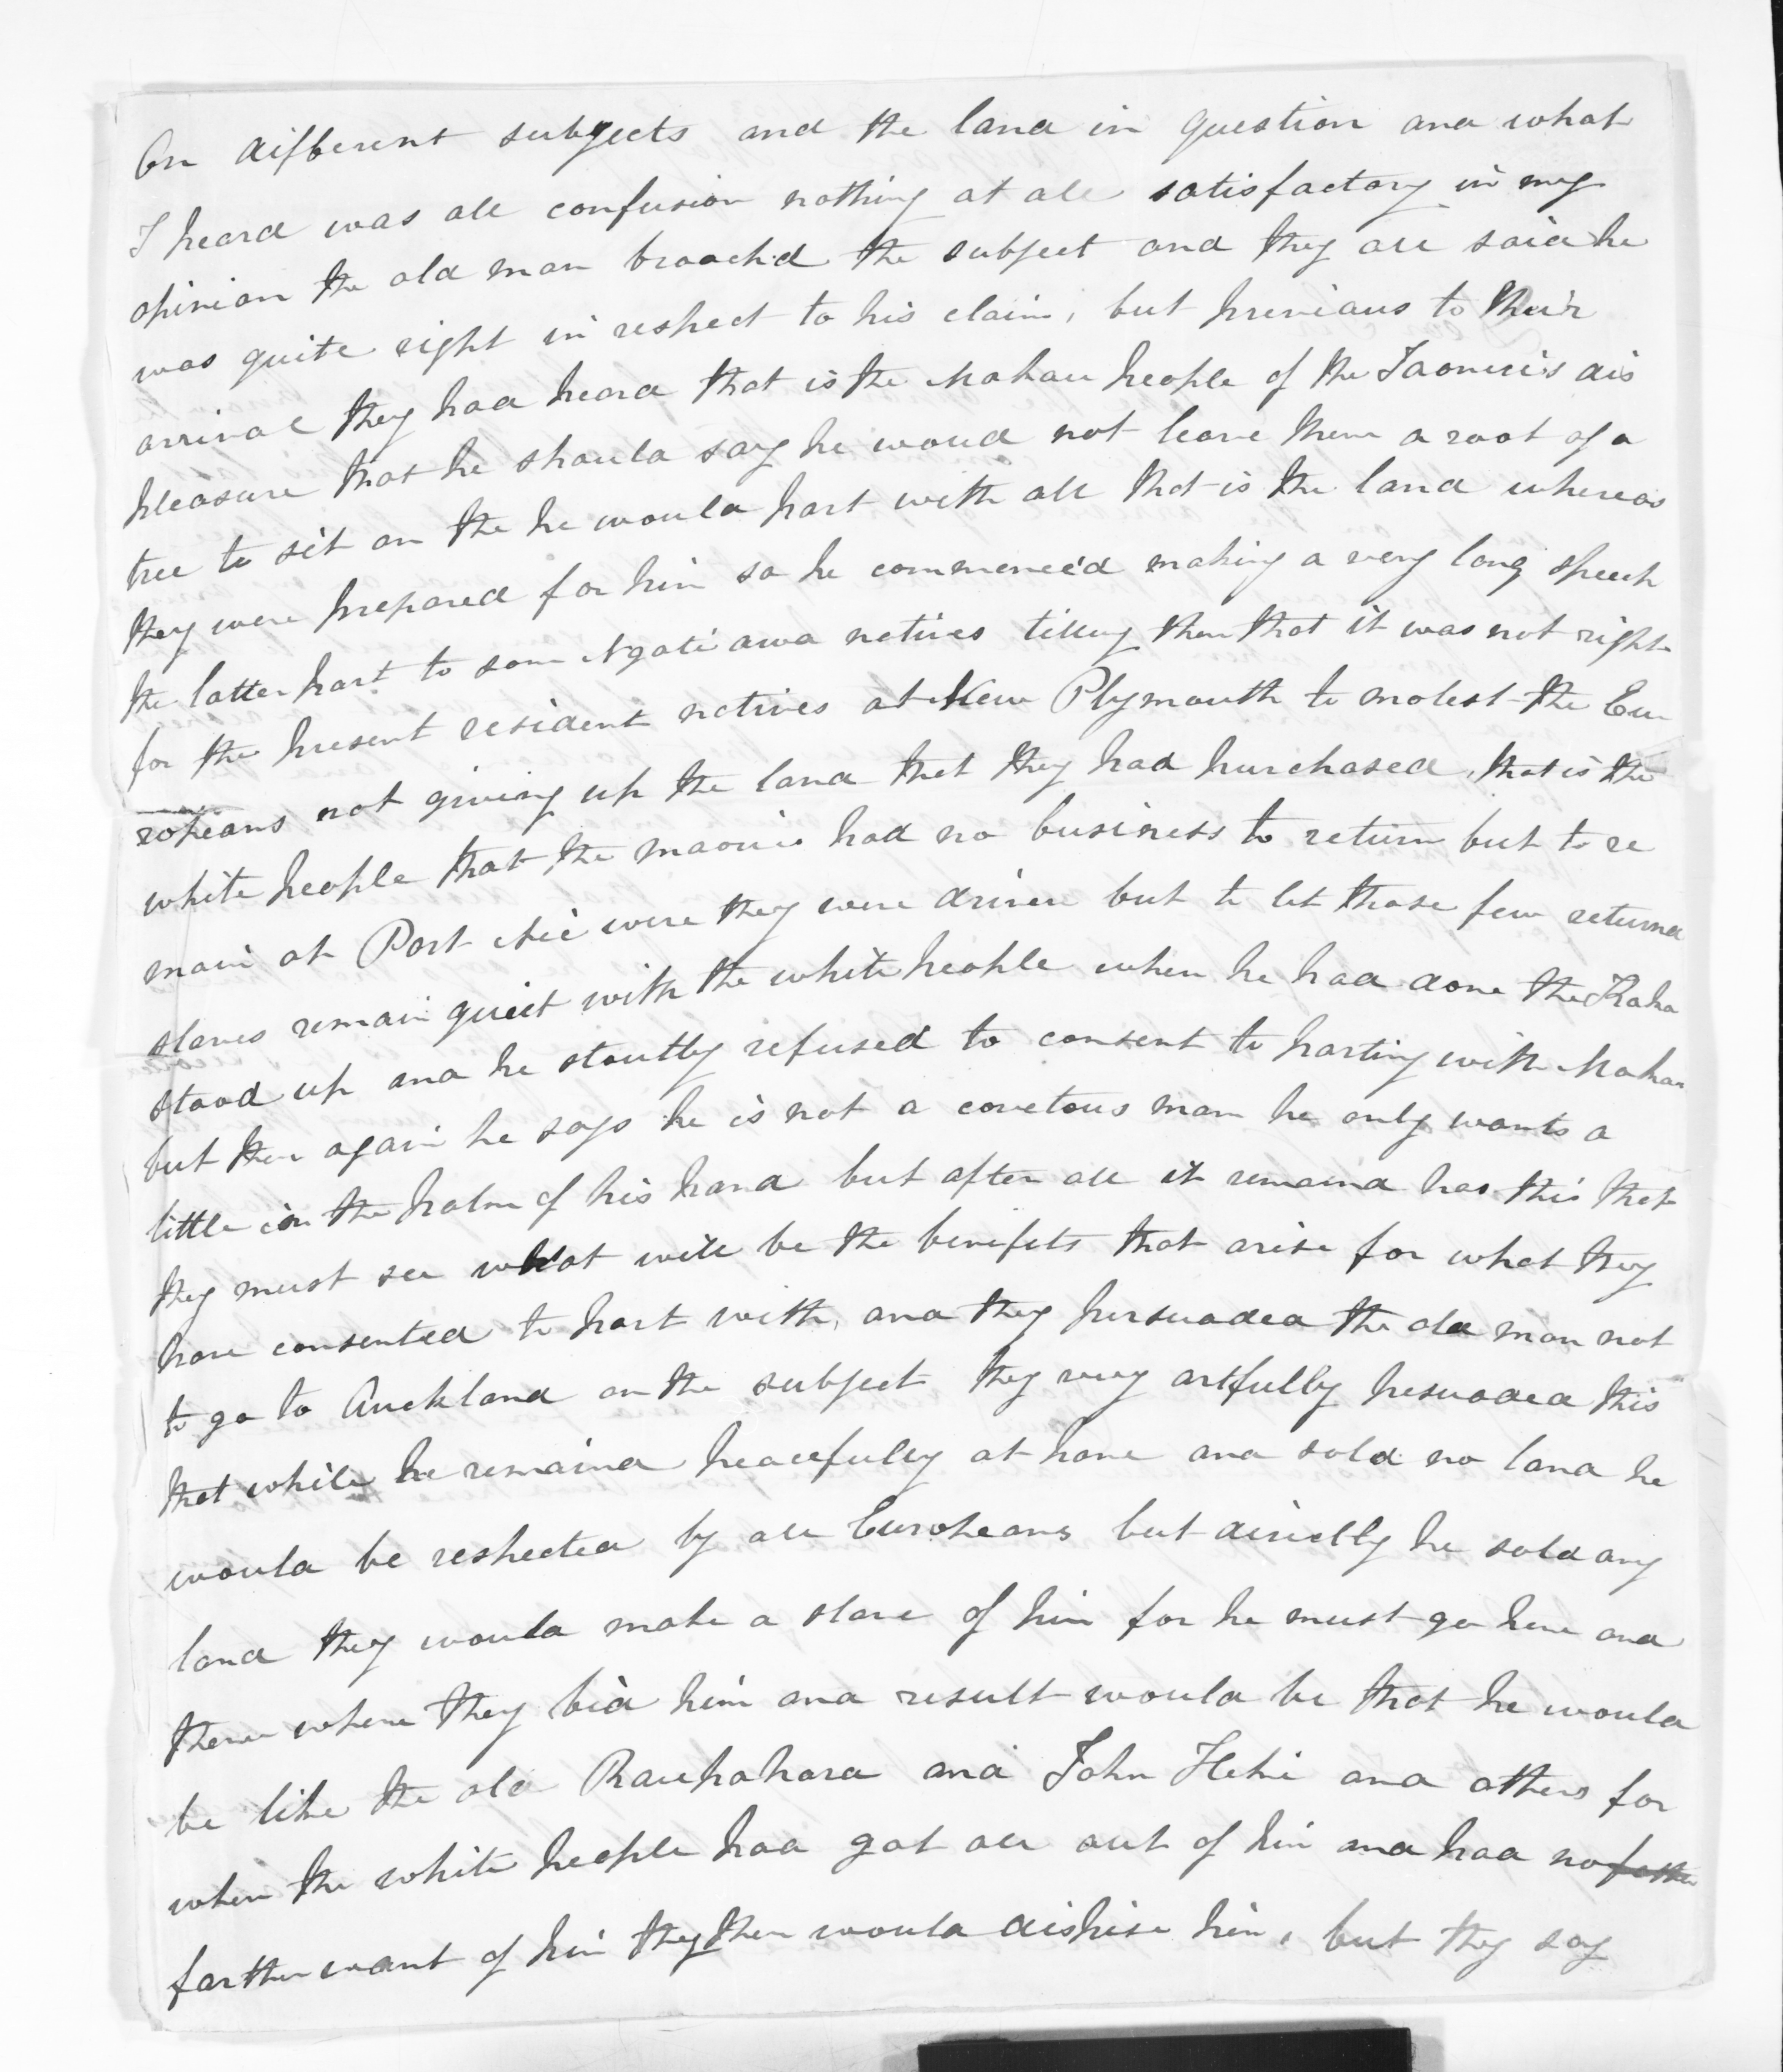 On different subjects and the land in question and what
I heard was all confusion nothing at all satisfactory in my
opinion the old man broach'd the subject and they all said he
was quite right in respect to his claim, but previous to their
arrival they had heard that is the Mahau people of the Taonui's dis
pleasure that he should say he woud not leave them a root of a
tree to sit on the he would part with all that is the land whereas
they were prepared for him so he commence'd making a very long speech
the latter part to som Ngatiawa natives tilling them that it was not right
for the present resident natives at New Plymouth to molest the Eu-
ropeans not giving up the land that they had purchased, that is the
white people that the maouris had no business to return but to re
main at Port Nic were they were driven but to let those few returnd
slaves remain quiet with the white people when he had done the
stood up and he stoutly refused to consent to parting with Mahau
but then again he says he is not a covetous man he only wants a
little in the palm of his hand but after all it remaind has this that
they must see what will be the benifits that arise for what they
have consented to part with, and they pursuaded the old man not
to go to Auckland on the subject they very artfully pesuaded this
that while he remaind peacefully at home and sold no land he
would be respected by all Europeans but dirictly he sold any
land they would make a slave of him for he must go here and
there where they bid him and result would be that he would
be like the old Rauparhara and John Heke and others for
when the white people had got all out of him and had no
farther want of him they then would dispise him, but they say